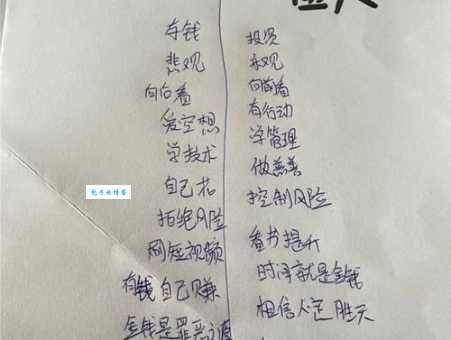 存钱
悲观
向后看
爱空想
学技术
自己花
拒绝风险
刷短视频
有钱自己赚
金钱是罪恶之源
投资
乐观
向前看
有行动
学管理
做慈善
控制风险
看书提升
时间就是金钱
相信人定胜天
包子的博客